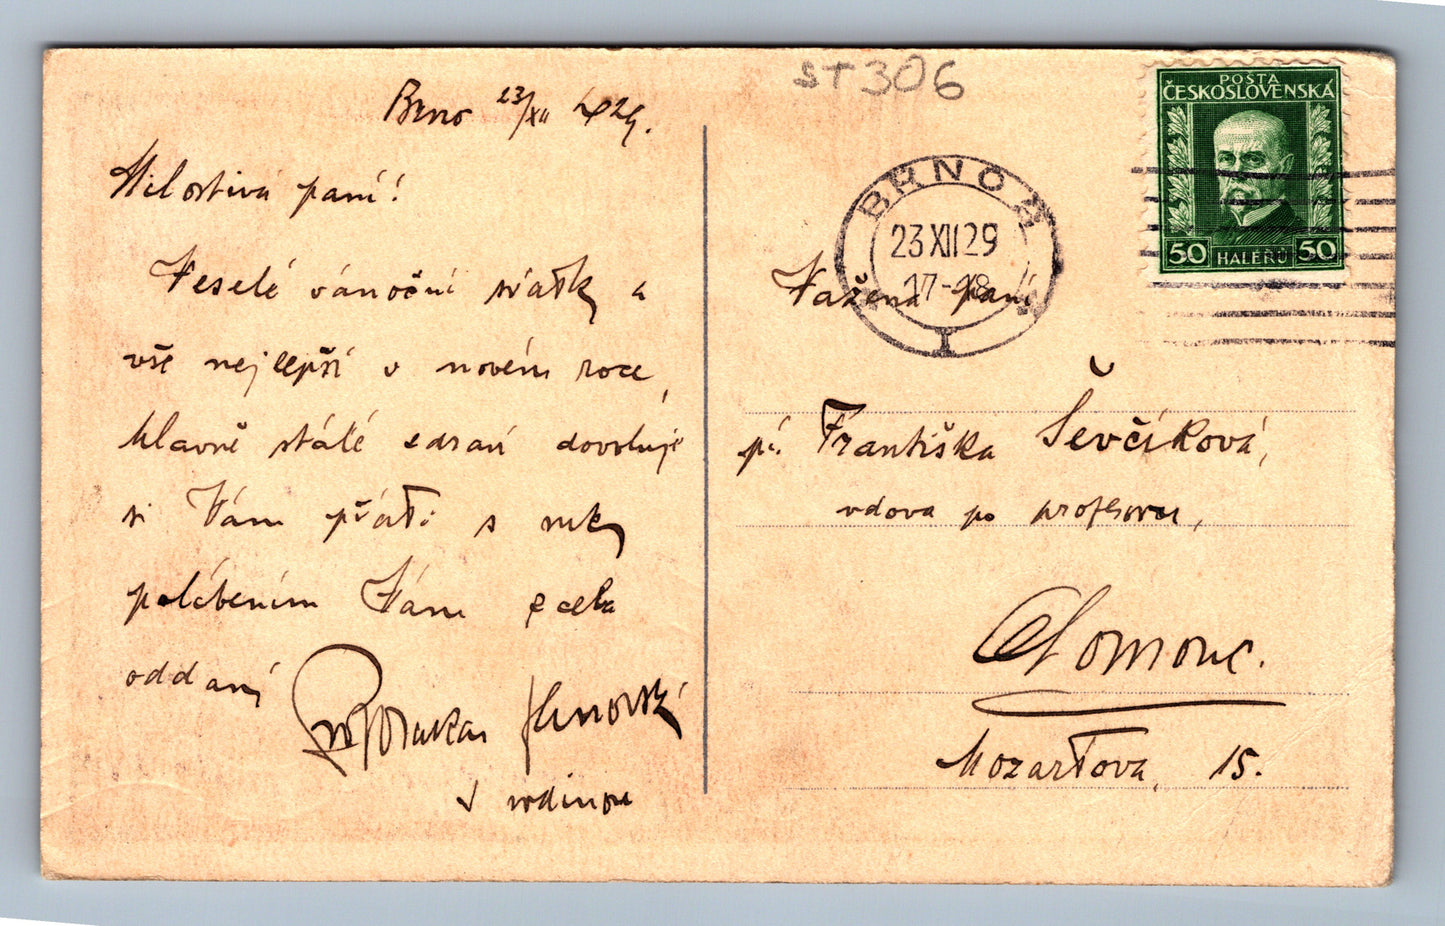 ST306
Brno 23/XII 1929.
Milostivá paní!
Veselé vánoční svátky a
vše nejlepší v novém roce,
hlavně stálé zdraví dovoluje
si Vám přáti s ruky
políbením Vám zcela
oddaný
Prof
s rodinou
POSTA
ČESKOSLOVENSKÁ
50 HALÉŘŮ 50
BRNO 2
23 XII 29
17-18
I
Vážená paní
pí. Františka Ševčíková,
vdova po profesoru,
Olomouc.
Mozartova, 15.